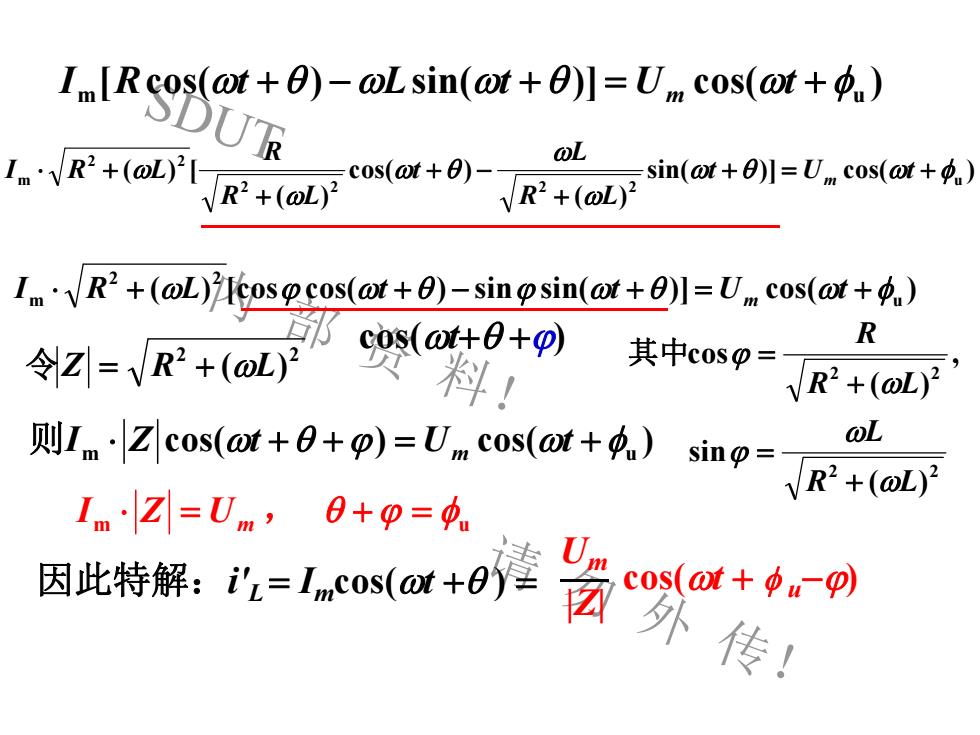 I_m[R cos(ωt + θ) − ωL sin(ωt + θ)] = U_m cos(ωt + ϕ_u)
I_m · √(R² + (ωL)²) [R/√(R² + (ωL)²) cos(ωt + θ) − ωL/√(R² + (ωL)²) sin(ωt + θ)] = U_m cos(ωt + ϕ_u)
I_m · √(R² + (ωL)²) [cos φ cos(ωt + θ) − sin φ sin(ωt + θ)] = U_m cos(ωt + ϕ_u)
cos(ωt+θ+φ)
令|Z| = √(R² + (ωL)²)
其中cos φ = R/√(R² + (ωL)²) ,
则I_m · |Z| cos(ωt + θ + φ) = U_m cos(ωt + ϕ_u)
sin φ = ωL/√(R² + (ωL)²)
I_m · |Z| = U_m ， θ + φ = ϕ_u
因此特解：i'_L = I_m cos(ωt + θ) = U_m/|Z| cos(ωt + ϕ_u − φ)
SDUT
内部资料！
请勿外传！